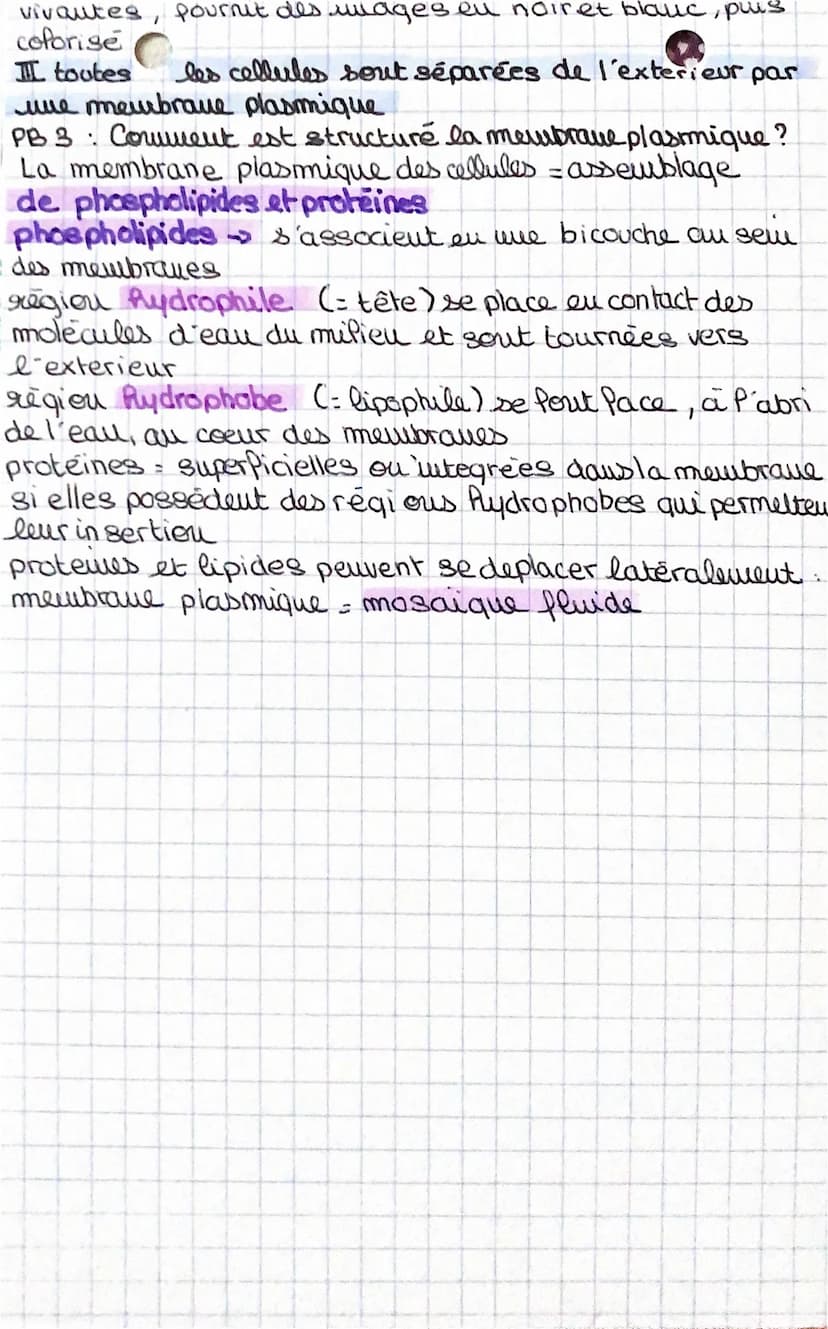 vivantes, fournit des images en noir et blanc, puis
colorisé
III toutes les cellules sont séparées de l'exterieur par
une membrane plasmique
PB 3 : Comment est structuré la membrane plasmique ?
La membrane plasmique des cellules = assemblage
de phospholipides et protéines
phospholipides → s'associent en une bicouche au sein
des membranes
région hydrophile (= tête) se place en contact des
molécules d'eau du milieu et sont tournées vers
l'exterieur
région hydrophobe (= lipophile) se font face, à l'abri
de l'eau, au coeur des membranes
protéines = superficielles ou integrées dans la membrane
si elles possèdent des régions hydrophobes qui permetten
leur insertion
proteines et lipides peuvent se deplacer latéralement.
membrane plasmique = mosaïque fluide